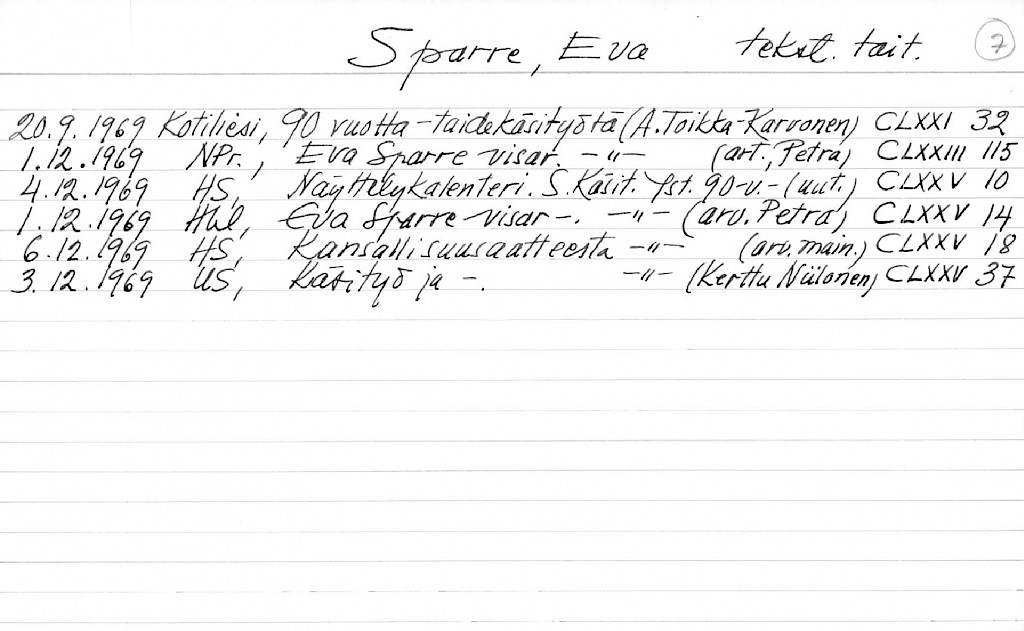 Sparre, Eva tekst. tait. 7
20.9.1969 Kotiliesi, 90 vuotta - taidekäsityötä (A. Toikka-Karvonen) CLXXI 32
1.12.1969 NPr., Eva Sparre -visar. -"- (art., Petra) CLXXIII 115
4.12.1969 HS, Näyttelykalenteri. S. Käsit. Yst. 90-v. - (uut.) CLXXV 10
1.12.1969 Hbl, Eva Sparre -visar -. -"- (arv. Petra) CLXXV 14
6.12.1969 HS, Kansallisuusaatteesta -"- (arv. main.) CLXXV 18
3.12.1969 US, Käsityö ja -. -"- (Kerttu Niilonen) CLXXV 37